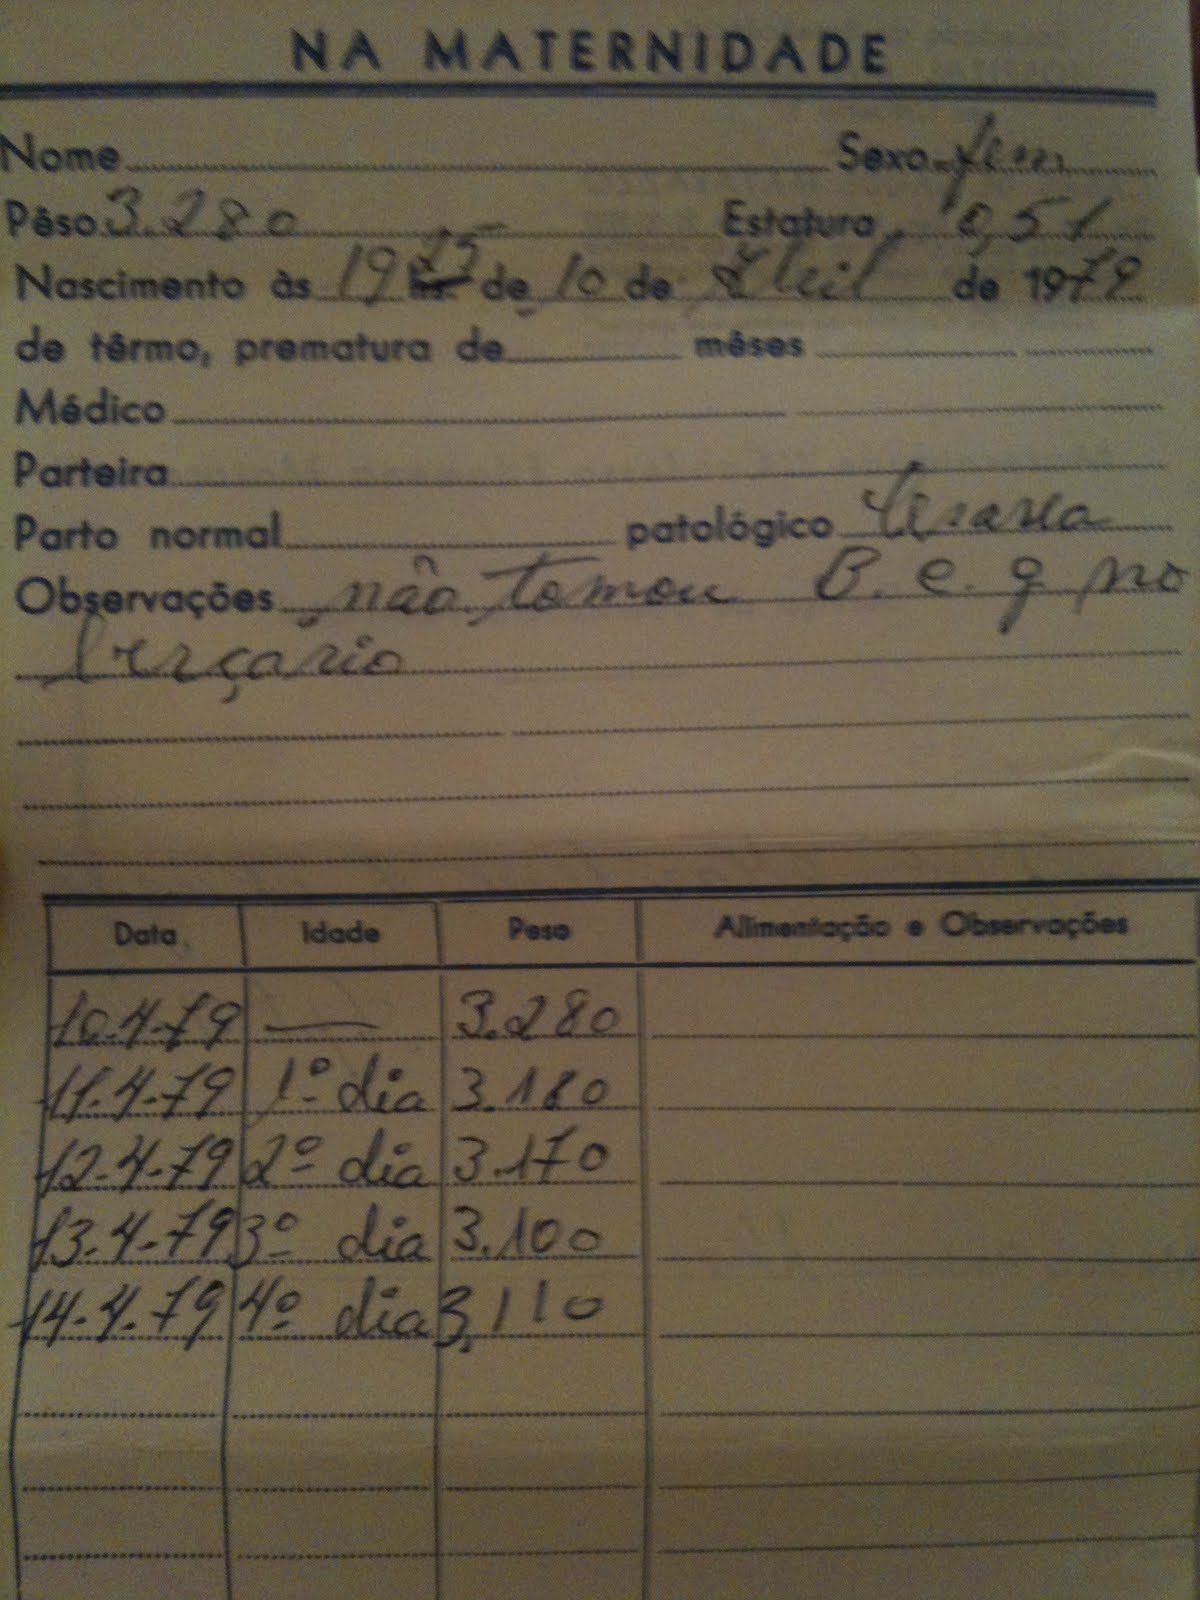 NA MATERNIDADE
Nome Sexo fem
Pêso 3.280 Estatura 0,51
Nascimento às 19 25 hs. de 10 de Abril de 1979
de têrmo, prematura de mêses
Médico
Parteira
Parto normal patológico Cesarea
Observações não tomou B. c. g no
berçário
Data Idade Peso Alimentação e Observações
10.4.79 — 3.280
11.4.79 1º dia 3.180
12.4.79 2º dia 3.170
13.4.79 3º dia 3.100
14.4.79 4º dia 3.110